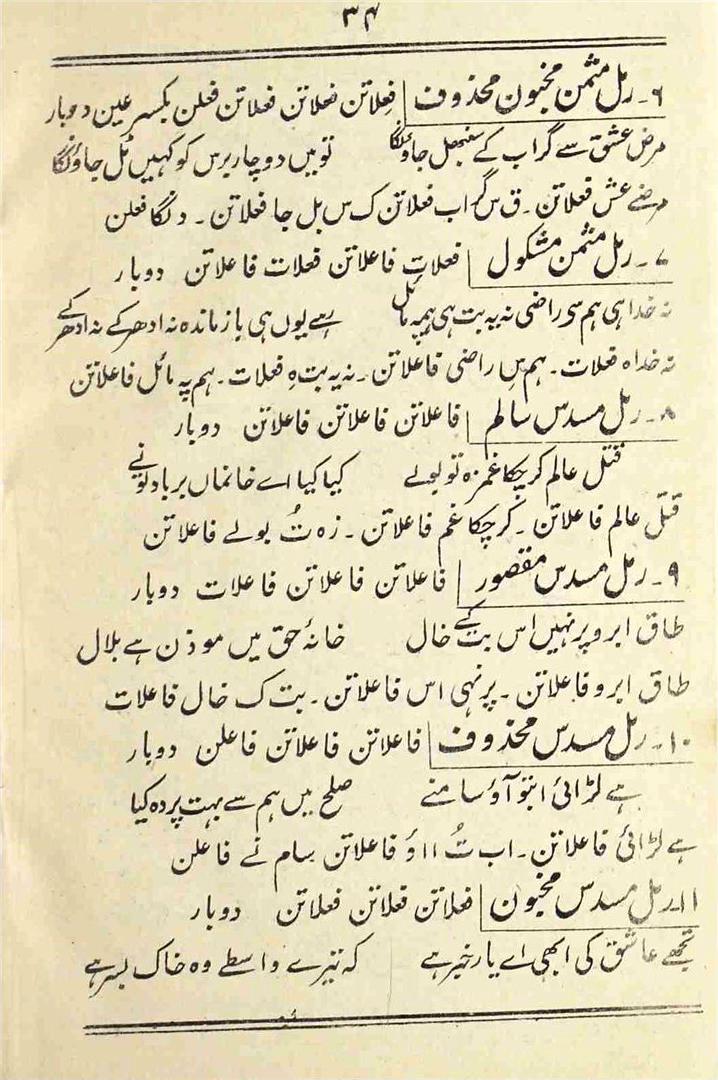 ۳۴
۶۔ رمل مثمن مخبون محذوف فعلاتن فعلاتن فعلاتن فعلن بکسر عین دوبار
مرض عشق سے گر اب کے سنبھل جاؤنگا تو میں دو چار برس کو کہیں ٹل جاؤنگا
مرضے عش فعلاتن۔ ق س گر اب فعلاتن ک س بل جا فعلاتن۔ ونگا فعلن
۷۔ رمل مثمن مشکول فعلات فاعلاتن فعلات فاعلاتن دوبار
نہ خدا ہی ہم سے راضی نہ یہ بت ہی ہمپہ مائل رہے یوں ہی باز ماندہ نہ ادھر کے نہ ادھر کے
نہ خداہ فعلات۔ ہم سِ راضی فاعلاتن۔ نہ یہ بت ہِ فعلات۔ ہم پہ مائل فاعلاتن
۸۔ رمل مسدس سالم فاعلاتن فاعلاتن فاعلاتن دوبار
قتل عالم کر چکا غمزہ تو بولے کیا کیا اے خانماں برباد تونے
قتل عالم فاعلاتن۔ کر چکا غم فاعلاتن۔ زہ تُ بولے فاعلاتن
۹۔ رمل مسدس مقصور فاعلاتن فاعلاتن فاعلات دوبار
طاق ابرو پر نہیں اس بت کے خال خانۂ حق میں موذن ہے بلال
طاق ابرو فاعلاتن۔ پر نہی اس فاعلاتن۔ بت ک خال فاعلات
۱۰۔ رمل مسدس محذوف فاعلاتن فاعلاتن فاعلن دوبار
ہے لڑائی ابتو آؤ سامنے صلح میں ہم سے بہت پردہ کیا
ہے لڑائی فاعلاتن۔ اب تُ ااؤ فاعلاتن سام نے فاعلن
۱۱۔ رمل مسدس مخبون فعلاتن فعلاتن فعلاتن دوبار
تجھے عاشق کی ابھی اے یار خبر ہے کہ تیرے واسطے وہ خاک بسر ہے